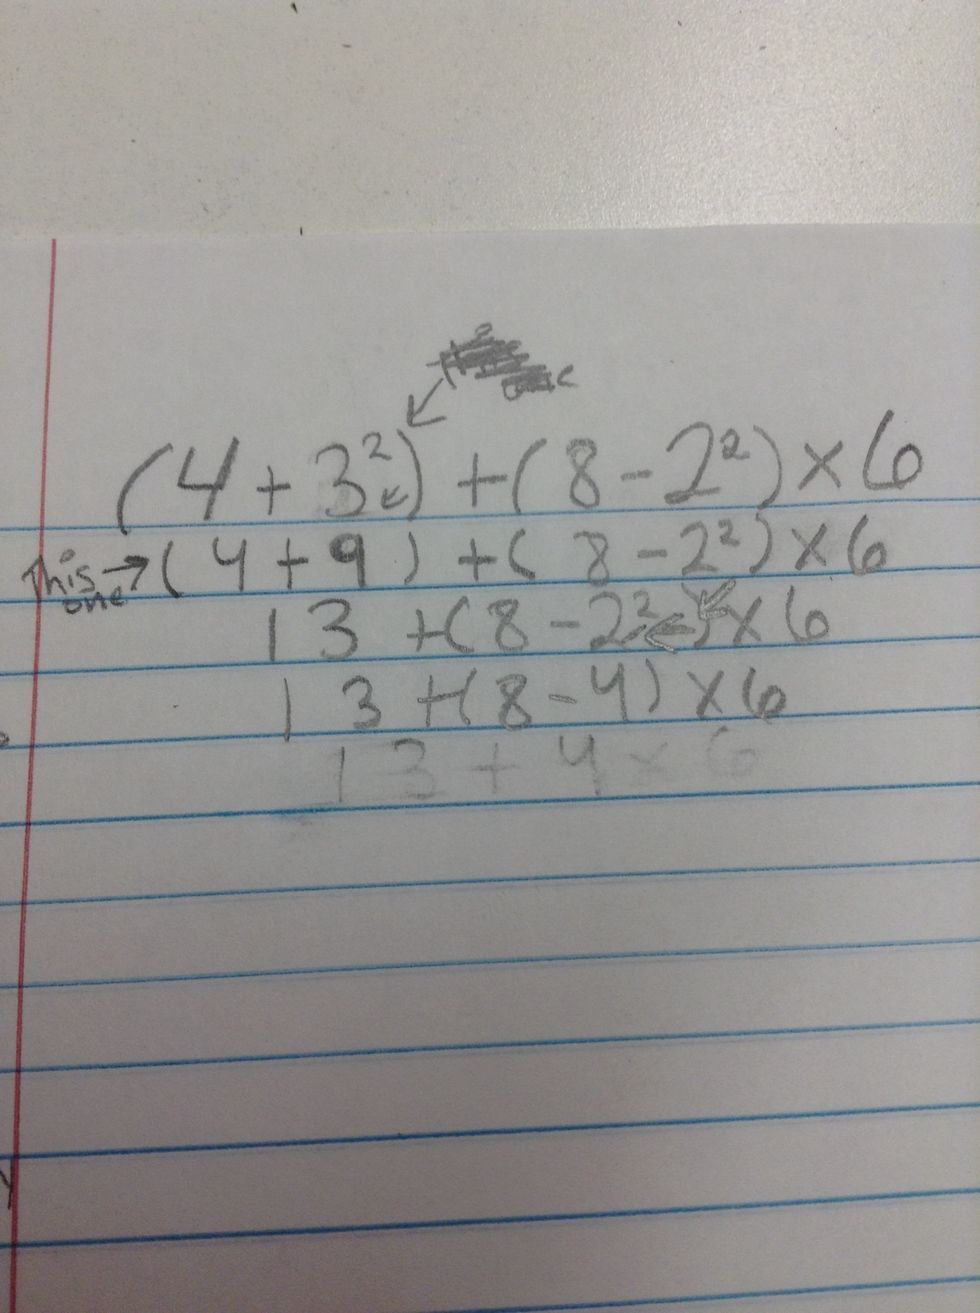 (4 + 3²) + (8 - 2²) × 6
This one → (4 + 9) + (8 - 2²) × 6
13 + (8 - 2²) × 6
13 + (8 - 4) × 6
13 + 4 × 6